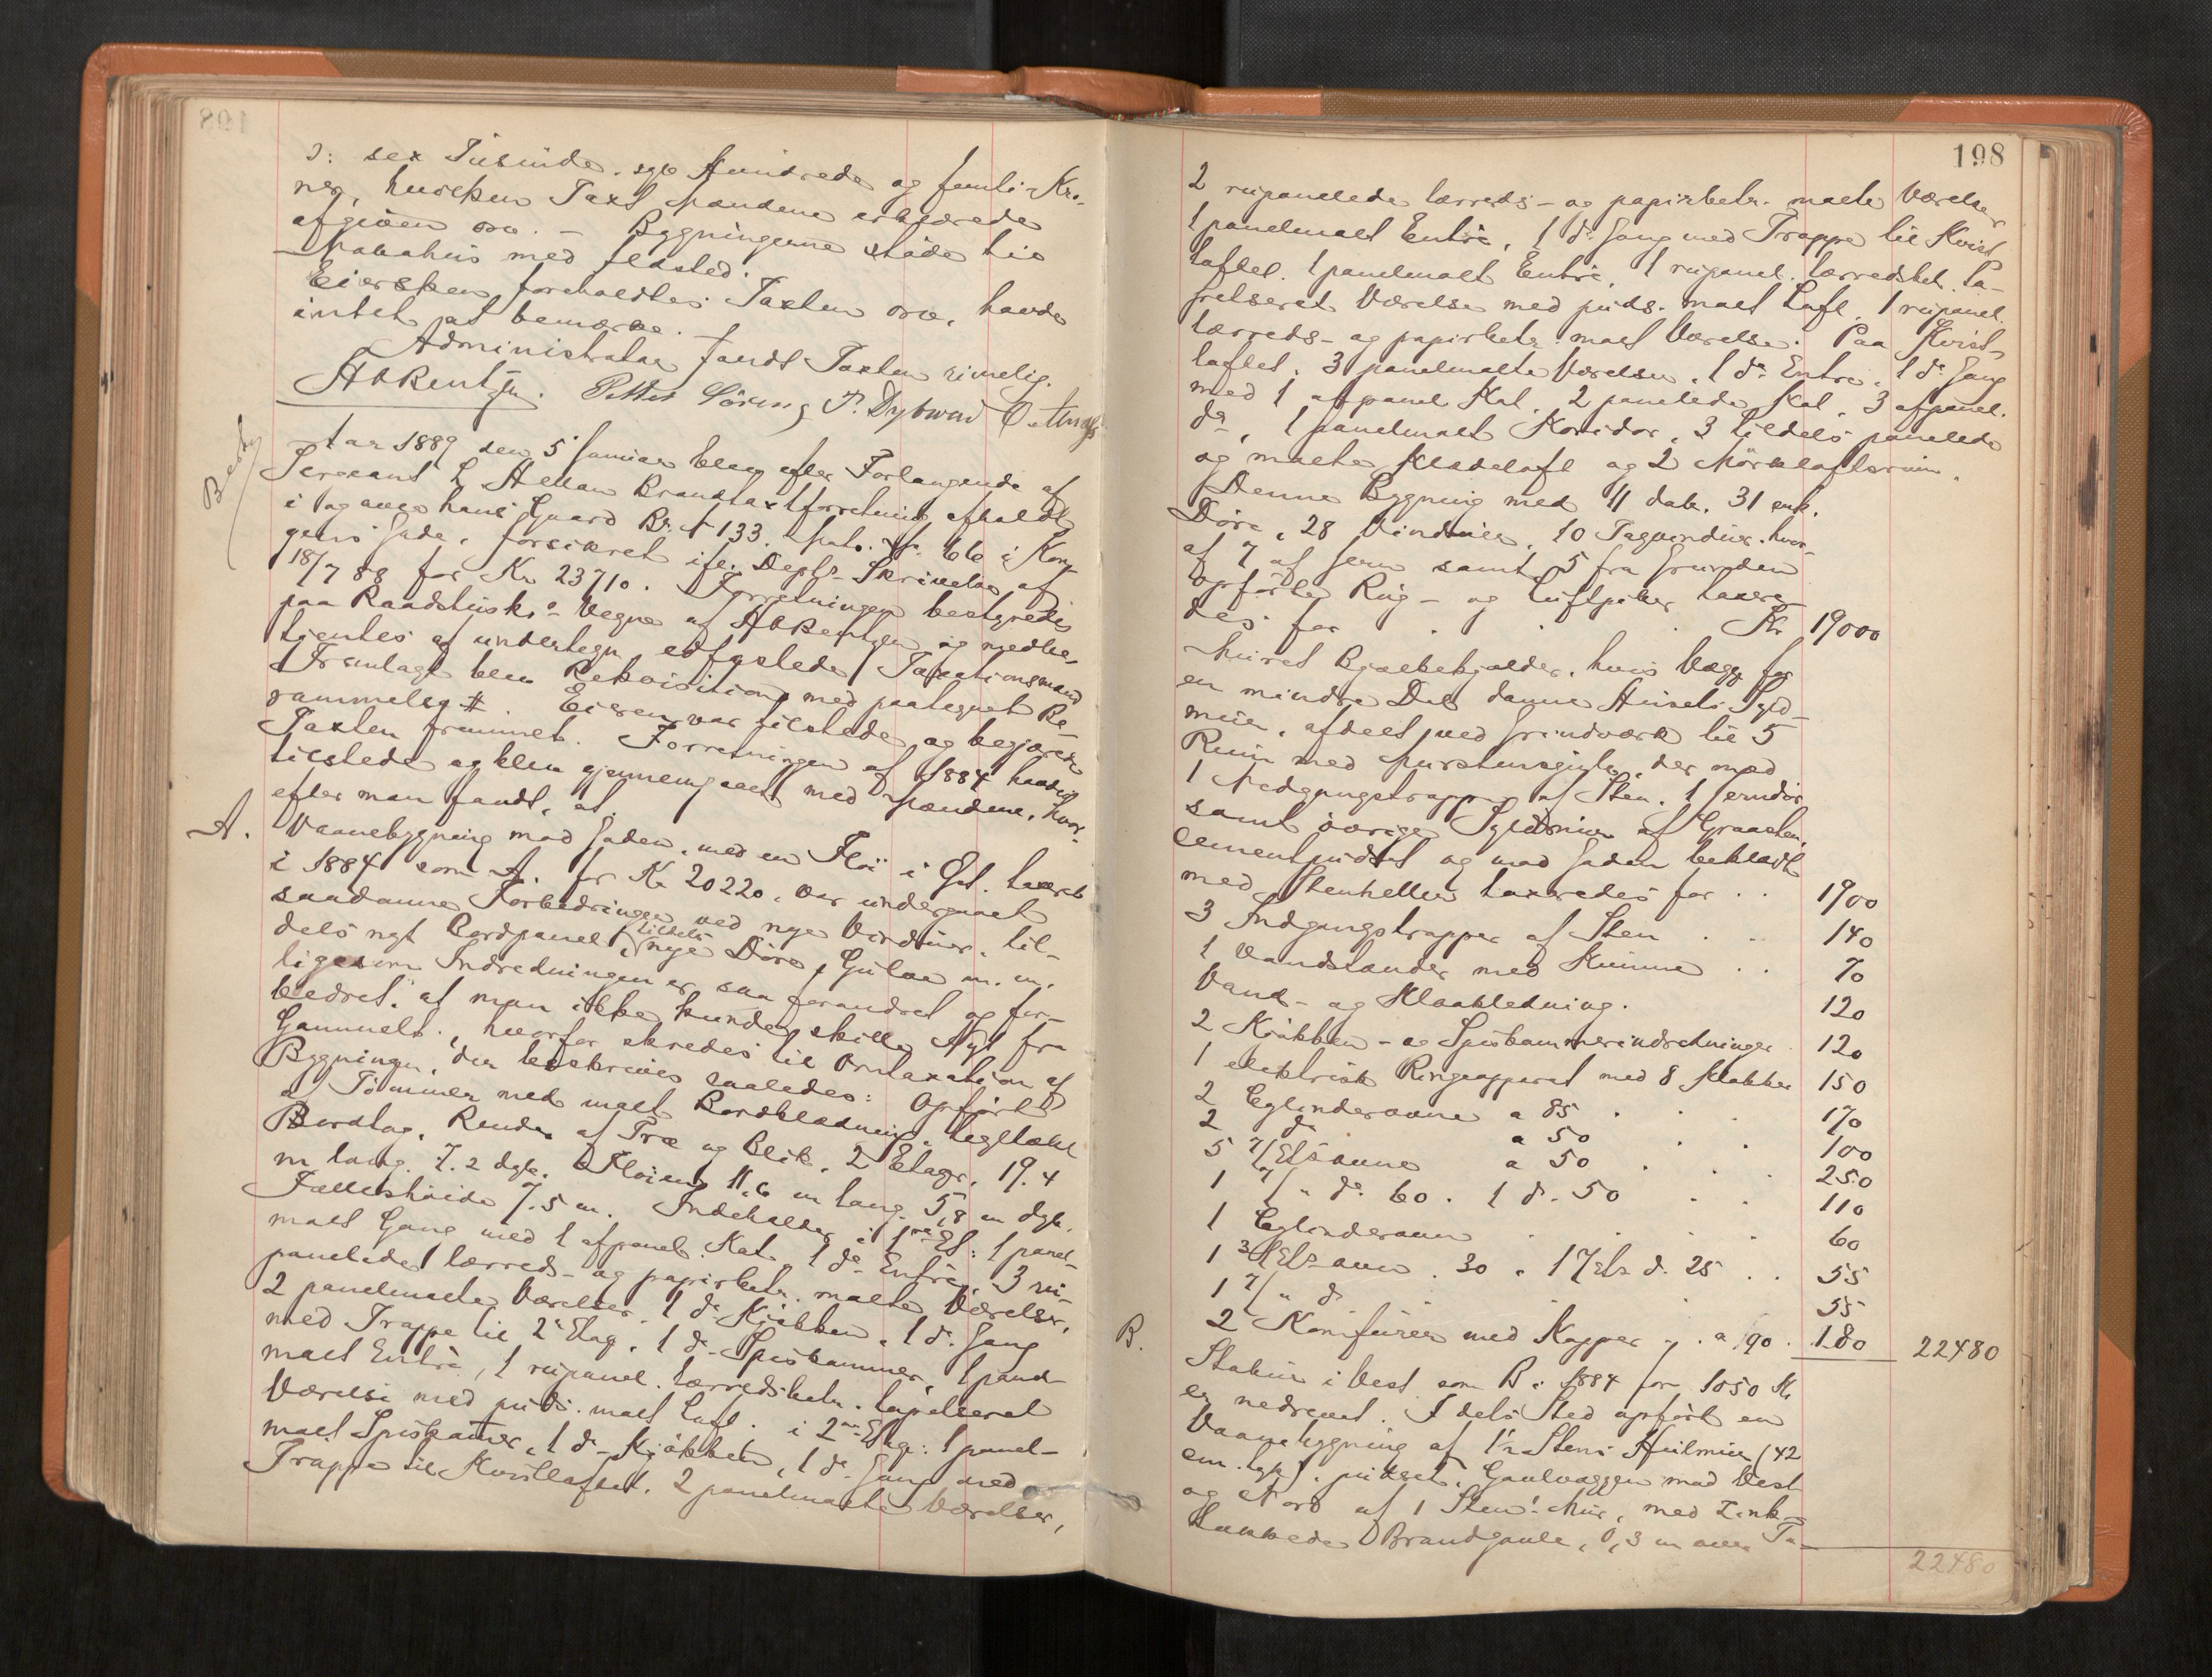 ɔ: sex Tusinde, syv Hundrede og femti Kro-
ner, hvilken Taxt Mændene erklærede
afgiven osv. – Bygningerne stöde til
Nabohus med Ildsted.
Eiersken foreholdtes Taxten osv. havde
intet at bemærke.
Administrator fandt Taxten rimelig.
AORentzen. Petter Söreng P. Dybwad
Aar 1889 den 5' Januar blev efter Forlangende af
Sergeant L Hellan Brandtaxtforretning afholdt
i og over hans Gaard Br. № 133. Matr. № 66 i Kon-
gens Gade, forsikret ifl. Depts Skrivelse af
18/7 88 for Kr 23710. Forretningen bestyredes
paa Raadstusk.s Vegne af AORentzen og medbe-
tjentes af undertegn. edfæstede Taxationsmænd
Fremlagt blev Rekvisition med paategnet Be-
rammelse #. Eieren var tilstede og begjærede
Taxten fremmet. Forretningen af 1884 havdes
tilstede og blev gjennemgaaet med Mændene, hvor-
efter man fandt, at
A. Vaanebygning mod Gaden, med en Flöi i Gd. taxeret
i 1884 som A. for Kr 20220, var undergaaet
saadanne Forbedringer ved nye Vinduer, til-
dels nyt Bordpanel, tildels nye Döre, Gulve m. m.
ligesom Indredningen er saa forandret og for-
bedret, at man ikke kunde skille Nyt fra
Gammelt, hvorfor skredes til Omtaxation af
Bygningen, der beskrives saaledes: Opfört
af Tömmer med malt Bordklædning, teglhængt
Bordtag, Render af Træ og Blik, 2 Etager, 19.4
m lang. 7.2 dyb. Flöien 11,6 m lang. 5,8 m dyb.
Fælleshöide 7.5 m. Indeholder i 1ste Et: 1 panel-
malt Gang med 1 afpanel. Kot. 1 do Entré, 3 ru-
panelede lærreds- og papirbetr. malte Værelser,
2 panelmalte Værelser. 1 do Kjökken, 1 do. Gang
med Trappe til 2' Etag. 1 do Spiskammer, 1 panel-
malt Entré, 1 rupanel. lærredsbetr. tapetseret
Værelse med puds. malt Loft. i 2den Etage: 1 panel-
malt Spiskamer, 1 do Kjökken, 1 do. Gang med
Trappe til Kvistloftet. 2 panelmalte Værelser,
198
2 rupanelede lærreds- og papirbetr. malte Værelser
1 panelmalt Entré, 1 do. Gang med Trappe til Kvist-
loftet. 1 panelmalt Entré, 1 rupanel. lærredsbet. ta-
petseret Værelse med puds. malt Loft, 1 rupanel.
lærreds- og papirbetr. malt Værelse. Paa Kvist-
loftet. 3 panelmalte Værelser, 1 do Entré, 1 do Gang
med 1 afpanel Kot. 2 panelede Kot, 3 afpanel.
do, 1 panelmalt Koridor, 3 tildels panelede
og malte Klædeloft og 2 Mörkloftsrum.
Denne Bygning med 11 dob. 31 enk.
Döre, 28 Vinduer, 10 Tagvinduer, hvor-
af 7 af Jern samt 5 fra Grunden
opförte Rög- og Luftpiber taxere-
des for . . . Kr 19000
Muret Bjælkekjelder, hvis Vægge for
en mindre Del danne Husets Syld-
mur, afdelt ved Grindværk til 5
Rum med Murstensgulv, der med
1 Nedgangstrappe af Sten, 1 Jerndör
samt övrige Syldmur af Graasten,
cementpudset og mod Gaden beklædt
med Stenheller taxeredes for . . 1900
3 Indgangstrapper af Sten . . 140
1 Vandstander med Kumme . . 70
Vand- og Kloakledning. 120
2 Kjökken- og Spiskammerindretninger 120
1 elektrisk Ringeapparat med 8 Klokker 150
2 Cylinderovne a 85 . . 170
2 do a 50 . . 100
5 7/Etsovne a 50 . . 250
1 7/" do. 60. 1 do. 50 . . 110
1 Cylinderovn . . . 60
1 3/Etsovn. 30, 1 7/Ets do 25 . . 55
1 7/" do . . . 55
2 Komfurer med Kapper a 90. 180 22480
B. Stabur i Vest som B i 1884 for 1050 Kr
er nedrevet. I dets Sted opfört en
Vaanebygning af 1½ Stens Hulmur (42
cm. tyk), pudset. Gavlvæggen mod Vest
og Nord af 1 Stens Mur, med Zink-
dækkede Brandgavle, 0,3 m over Ta-
22480